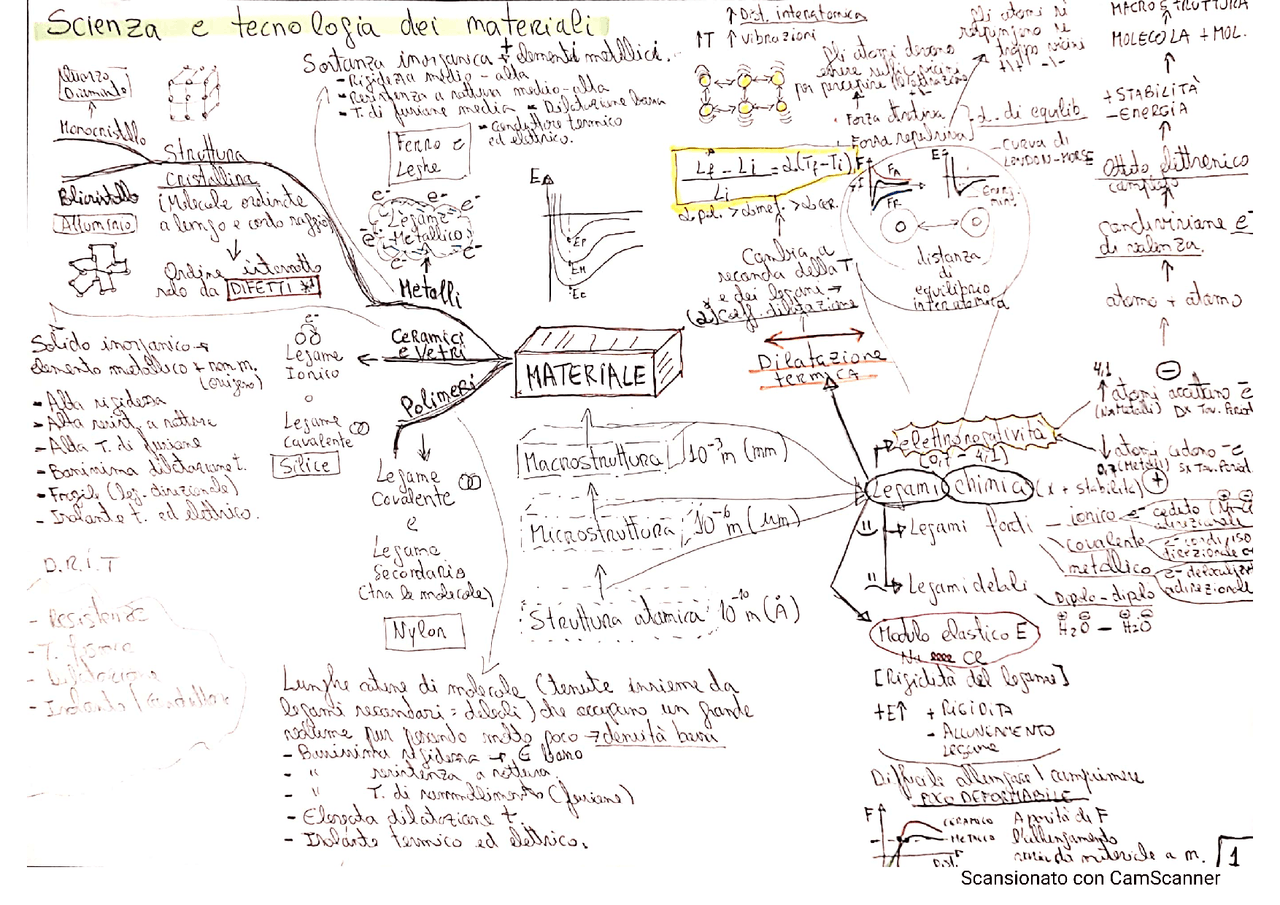 Scienza e tecnologia dei materiali
Quarzo
Diamante
Monocristallo
Struttura
cristallina
(Molecole ordinate
a lungo e corto raggio)
Policristallo
Alluminio
Ordine interrotto
solo da DIFETTI
Sostanza inorganica + elementi metallici.
- Rigidezza medio - alta
- Resistenza a rottura medio-alta
- T. di fusione media
- Dilatazione bassa
- conduttore termico
ed elettrico.
Ferro e
Leghe
e-
Legame
Metallico
Metalli
E
EP
EM
EC
Ceramici
e Vetri
Polimeri
MATERIALE
e-
Legame
Ionico
o
Legame
Covalente
Silice
Solido inorganico
elemento metallico + non m.
(ossigeno)
- Alta rigidezza
- Alta resist. a rottura
- Alta T. di fusione
- Bassissima dilatazione t.
- Fragili (leg. direzionale)
- Isolante t. ed elettrico.
D.R.I.T
- Resistenza
- T. fusione
- Dilatazione
- Isolante / Conduttore
Legame
Covalente
e
Legame
Secondario
(tra le molecole)
Nylon
Lunghe catene di molecole (tenute insieme da
legami secondari = deboli) che occupano un grande
volume pur pesando molto poco → densità bassa
- Bassissima rigidezza → E basso
- " resistenza a rottura
- " T. di rammollimento (fusione)
- Elevata dilatazione t.
- Isolante termico ed elettrico.
Macrostruttura 10⁻³ m (mm)
Microstruttura 10⁻⁶ m (μm)
Struttura atomica 10⁻¹⁰ m (Å)
↑ Dist. interatomica
↑T ↑ Vibrazioni
Lf - Li = α(Tf - Ti)
Li
α pol. > α met. > α cer.
Cambia a
seconda della T
e dei legami →
(α) Coeff. dilatazione
Dilatazione
termica
Gli atomi devono
essere su. vicini
per percepire
Gli atomi si
respingono se
troppo vicini
Forza attrattiva
Forza repulsiva
d. di equilib
- Curva di
LONDON-MORSE
F
FA
FR
E
distanza
di
equilibrio
interatomica
MACROSTRUTTURA
MOLECOLA + MOL.
+ STABILITÀ
- ENERGIA
Ottetto elettronico
completo
condivisione e-
di valenza.
atomo + atomo
4,1
↑ atomi accettano e-
(Non Metalli) Dx Tav. Period
elettronegatività
(0,7 - 4,1)
↓ atomi cedono -e
0,7 (Metalli) Sx Tav. Period
Legami chimici (x + stabilità)
Legami forti
ionico
covalente
metallico
Legami deboli
Dipolo - dipolo
H₂O - H₂O
Modulo elastico E
[Rigidità del legame]
+E↑ + RIGIDITÀ
- ALLUNGAMENTO
legame
Difficile allungare / comprimere
POCO DEFORMABILE
F
CERAMICO
METALLO
A parità di F
l'allungamento
varia da materiale a m.
1
Scansionato con CamScanner